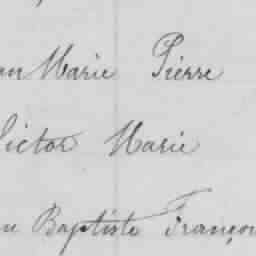 an Marie Pierre
Victor Marie
Baptiste Franço